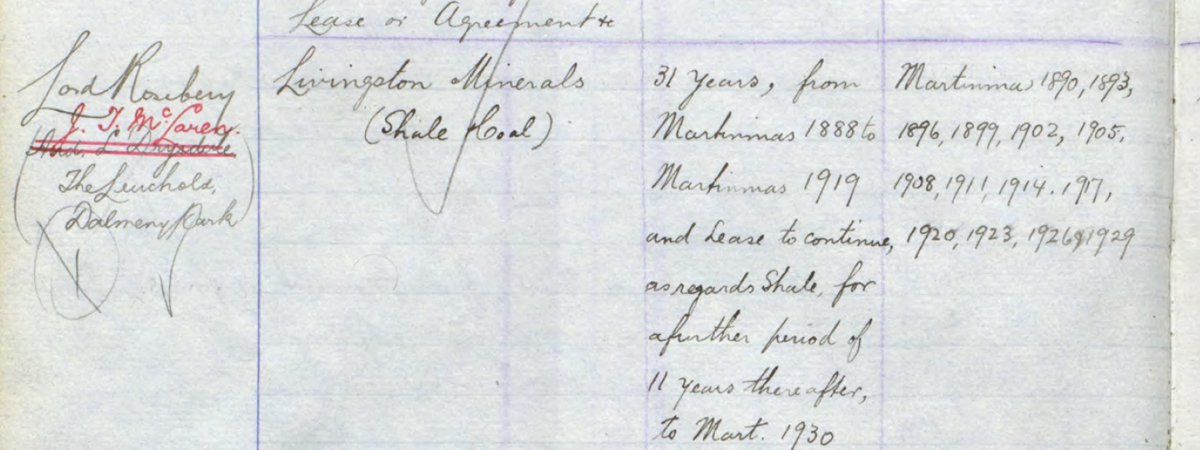 Lease or Agreement &c
Lord Rosebery
J. T. McLaren.
And. L Drysdale
The Leuchold,
Dalmeny Park
Livingston Minerals
(Shale & Coal)
31 Years, from
Martinmas 1888 to
Martinmas 1919
and Lease to continue,
as regards Shale, for
a further period of
11 years thereafter,
to Mart. 1930
Martinmas 1890, 1893,
1896, 1899, 1902, 1905,
1908, 1911, 1914. 1917,
1920, 1923, 1926 & 1929